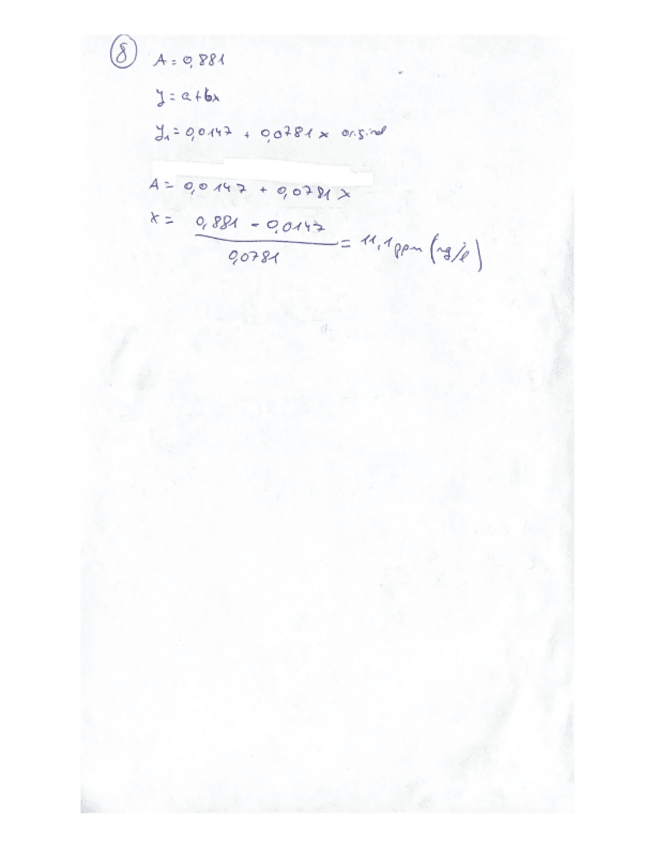 8
A = 0,881
y = a + bx
y₁ = 0,0147 + 0,0781 x original
A = 0,0147 + 0,0781 x
x = 0,881 - 0,0147
0,0781
= 11,1 ppm (mg/l)